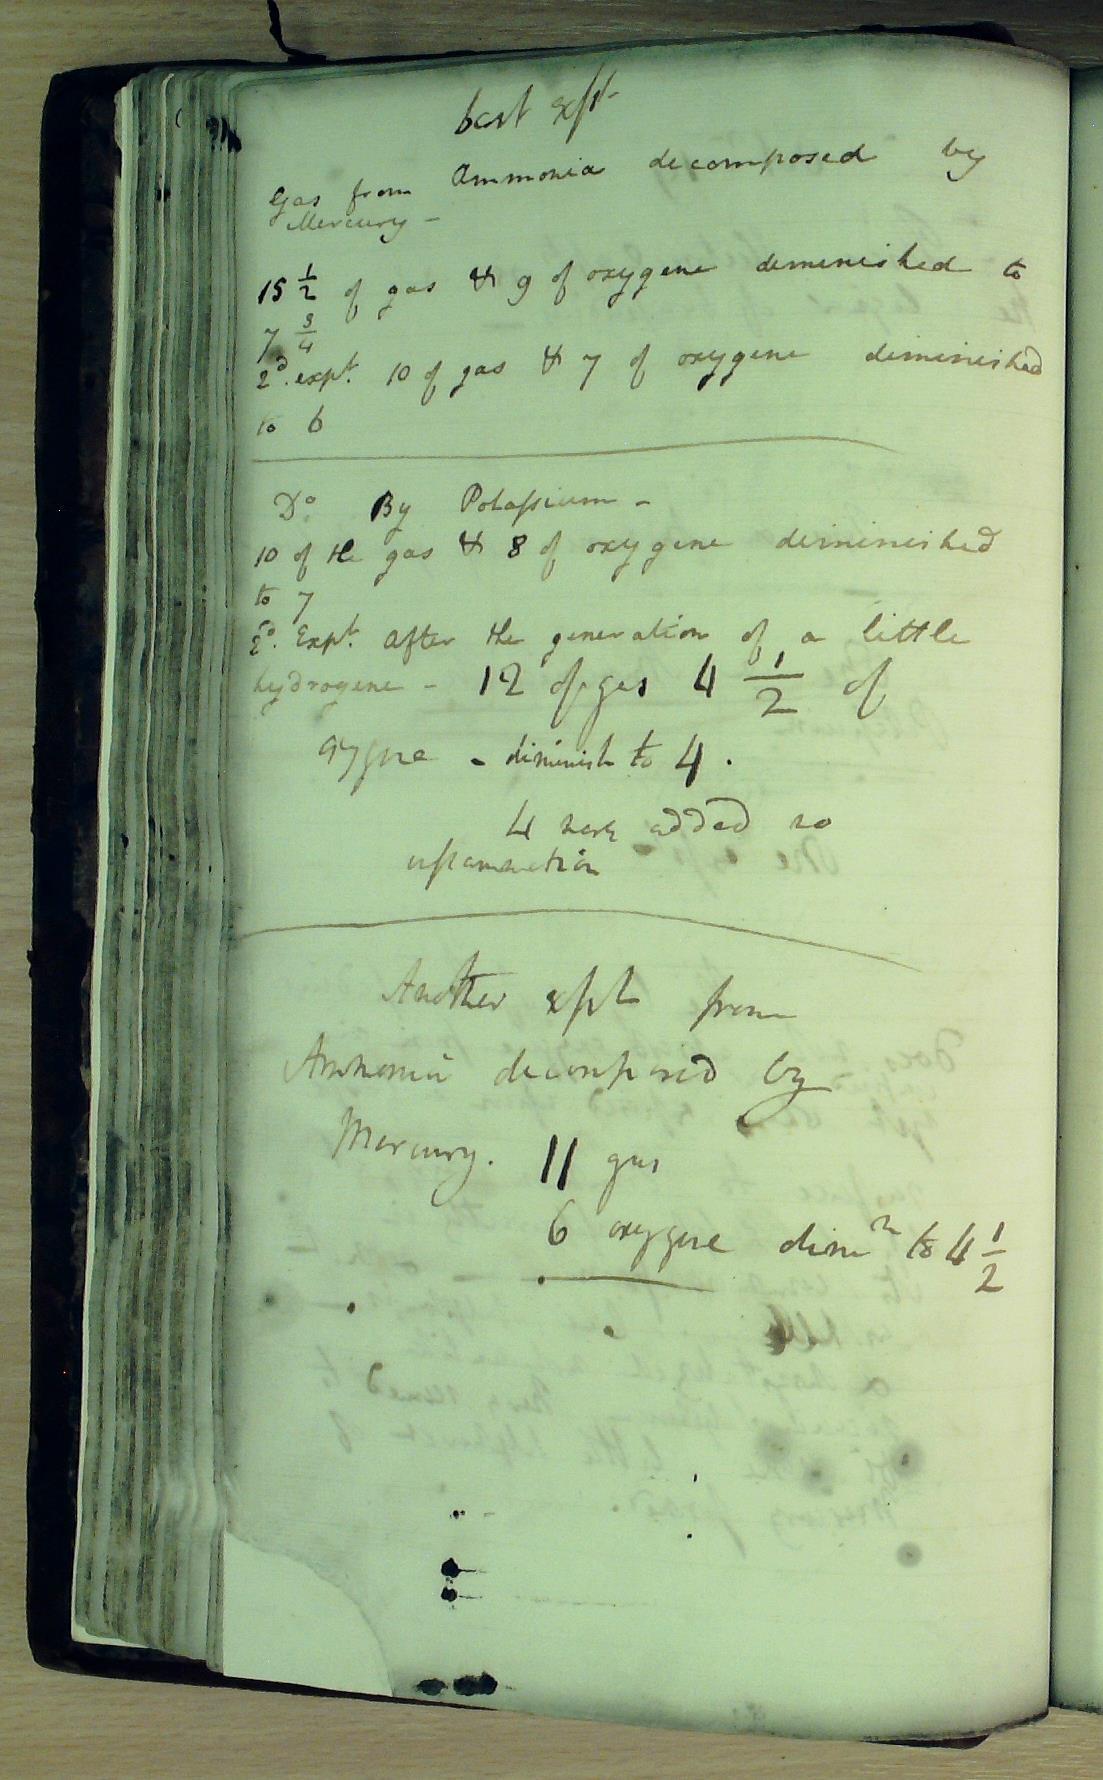 best expt
Gas from Ammonia decomposed by
Mercury -
15 1/2 of gas & 9 of oxygene diminished to
7 3/4
2d. expt. 10 of gas & 7 of oxygene diminished
to 6
Do By Potassium -
10 of the gas & 8 of oxygene diminished
to 7
2d. Expt. After the generation of a little
hydrogene - 12 of gas 4 1/2 of
oxygene - diminish to 4.
4 were added no
inflammation
Another expt from
Ammonia decomposed by
Mercury. 11 gas
6 oxygene dimn to 4 1/2